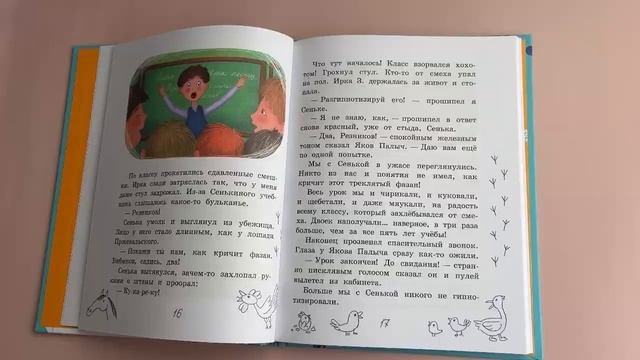 По классу прокатились сдавленные смеш-
ки. Ирка сзади затряслась так, что у меня
даже стул задрожал. Из-за Сенькиного учеб-
ника слышалось какое-то бульканье.
— Резников!
Сенька умолк и выглянул из убежища.
Лицо у него стало длинным, как у лошади
Пржевальского.
— Покажи ты нам, как кричит фазан.
садись, два!
Сенька вытянулся, зачем-то захлопал ру-
и проорал:
— Ку-ка-ре-ку!
16
Что тут началось! Класс взорвался хохо-
том! Грохнул стул. Кто-то от смеха упал
на пол. Ирка З. держалась за живот и сто-
нала.
— Разгипнотизируй его! — прошипел я
Сеньке.
— Я не знаю, как, — прошипел в ответ
снова красный, уже от стыда, Сенька.
— Два, Резников! — спокойным железным
тоном сказал Яков Палыч. — Даю вам ещё
по одной попытке.
Мы с Сенькой в ужасе переглянулись.
Никто из нас и понятия не имел, как
кричит этот треклятый фазан!
Весь урок мы и чирикали, и куковали,
и щебетали, и даже мяукали, на радость
всему классу, который захлёбывался от сме-
ха. Двоек наполучали... наверное, в три раза
больше, чем за все пять лет учёбы!
Наконец прозвенел спасительный звонок.
Глаза у Якова Палыча сразу как-то ожили.
— Урок закончен! До свидания! — стран-
но писклявым голосом сказал он и пулей
вылетел из кабинета.
Больше мы с Сенькой никого не гипно-
тизировали.
17